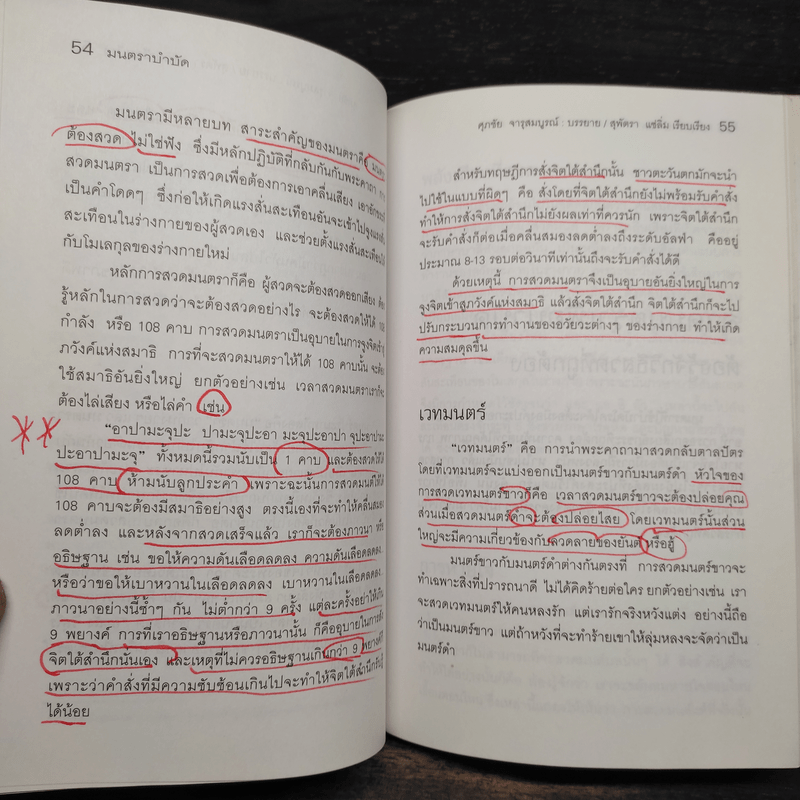 54 มนตราบำบัด
มนตรามีหลายบท สาระสำคัญของมนตราคือ
ต้องสวด ไม่ใช่ฟัง ซึ่งมีหลักปฏิบัติที่กลับกันกับพระคาถา
สวดมนตรา เป็นการสวดเพื่อต้องการเอาคลื่นเสียง
เป็นคำโดดๆ ซึ่งก่อให้เกิดแรงสั่นสะเทือนอันจะเข้าไปจูงแรงสั่น
สะเทือนในร่างกายของผู้สวดเอง และช่วยตั้งแรงสั่นสะเทือนให้
กับโมเลกุลของร่างกายใหม่
หลักการสวดมนตราก็คือ ผู้สวดจะต้องสวดออกเสียง ต้อง
รู้หลักในการสวดว่าจะต้องสวดอย่างไร จะต้องสวดให้ได้ 108
กำลัง หรือ 108 คาบ การสวดมนตราเป็นอุบายในการจูงจิตเข้าสู่
ภวังค์แห่งสมาธิ การที่จะสวดมนตราให้ได้ 108 คาบนั้น จะต้อง
ใช้สมาธิอันยิ่งใหญ่ ยกตัวอย่างเช่น เวลาสวดมนตราเราก็จะ
ต้องไล่เสียง หรือไล่คำ เช่น
"อาปามะจุปะ ปามะจุปะอา มะจุปะอาปา จุปะอาปามะ
ปะอาปามะจุ" ทั้งหมดนี้รวมนับเป็น 1 คาบ และต้องสวดให้ได้
108 คาบ ห้ามนับลูกประคำ เพราะฉะนั้นการสวดมนต์ให้ได้
108 คาบจะต้องมีสมาธิอย่างสูง ตรงนี้เองที่จะทำให้คลื่นสมอง
ลดต่ำลง และหลังจากสวดเสร็จแล้ว เราก็จะต้องภาวนา หรือ
อธิษฐาน เช่น ขอให้ความดันเลือดลดลง ความดันเลือดลดลง
หรือว่าขอให้เบาหวานในเลือดลดลง เบาหวานในเลือดลดลง
ภาวนาอย่างนี้ซ้ำๆ กัน ไม่ต่ำกว่า 9 ครั้ง แต่ละครั้งอย่าให้เกิน
9 พยางค์ การที่เราอธิษฐานหรือภาวนานั้น ก็คืออุบายในการสั่ง
จิตใต้สำนึกนั่นเอง และเหตุที่ไม่ควรอธิษฐานเกินกว่า 9 พยางค์ก็
เพราะว่าคำสั่งที่มีความซับซ้อนเกินไปจะทำให้จิตใต้สำนึกรับรู้
ได้น้อย
ศุภชัย จารุสมบูรณ์ : บรรยาย / สุพัตรา แซ่ลิ่ม เรียบเรียง 55
สำหรับทฤษฎีการสั่งจิตใต้สำนึกนั้น ชาวตะวันตกมักจะนำ
ไปใช้ในแบบที่ผิดๆ คือ สั่งโดยที่จิตใต้สำนึกยังไม่พร้อมรับคำสั่ง
ทำให้การสั่งจิตใต้สำนึกไม่ยังผลเท่าที่ควรนัก เพราะจิตใต้สำนึก
จะรับคำสั่งก็ต่อเมื่อคลื่นสมองลดต่ำลงถึงระดับอัลฟา คืออยู่
ประมาณ 8-13 รอบต่อวินาทีเท่านั้นถึงจะรับคำสั่งได้ดี
ด้วยเหตุนี้ การสวดมนตราจึงเป็นอุบายอันยิ่งใหญ่ในการ
จูงจิตเข้าสู่ภวังค์แห่งสมาธิ แล้วสั่งจิตใต้สำนึก จิตใต้สำนึกก็จะไป
ปรับกระบวนการทำงานของอวัยวะต่างๆ ของร่างกาย ทำให้เกิด
ความสมดุลขึ้น
เวทมนตร์
"เวทมนตร์" คือ การนำพระคาถามาสวดกลับตาลปัตร
โดยที่เวทมนตร์จะแบ่งออกเป็นมนตร์ขาวกับมนตร์ดำ หัวใจของ
การสวดเวทมนตร์ขาวก็คือ เวลาสวดมนตร์ขาวจะต้องปล่อยคุณ
ส่วนเมื่อสวดมนตร์ดำจะต้องปล่อยไสย โดยเวทมนตร์นั้นส่วน
ใหญ่จะมีความเกี่ยวข้องกับลวดลายของยันต์ หรือฮู้
มนตร์ขาวกับมนตร์ดำต่างกันตรงที่ การสวดมนตร์ขาวจะ
ทำเฉพาะสิ่งที่ปรารถนาดี ไม่ได้คิดร้ายต่อใคร ยกตัวอย่างเช่น เรา
จะสวดเวทมนตร์ให้คนหลงรัก แต่เรารักจริงหวังแต่ง อย่างนี้ถือ
ว่าเป็นมนตร์ขาว แต่ถ้าหวังที่จะทำร้ายเขาให้ลุ่มหลงจะจัดว่าเป็น
มนตร์ดำ